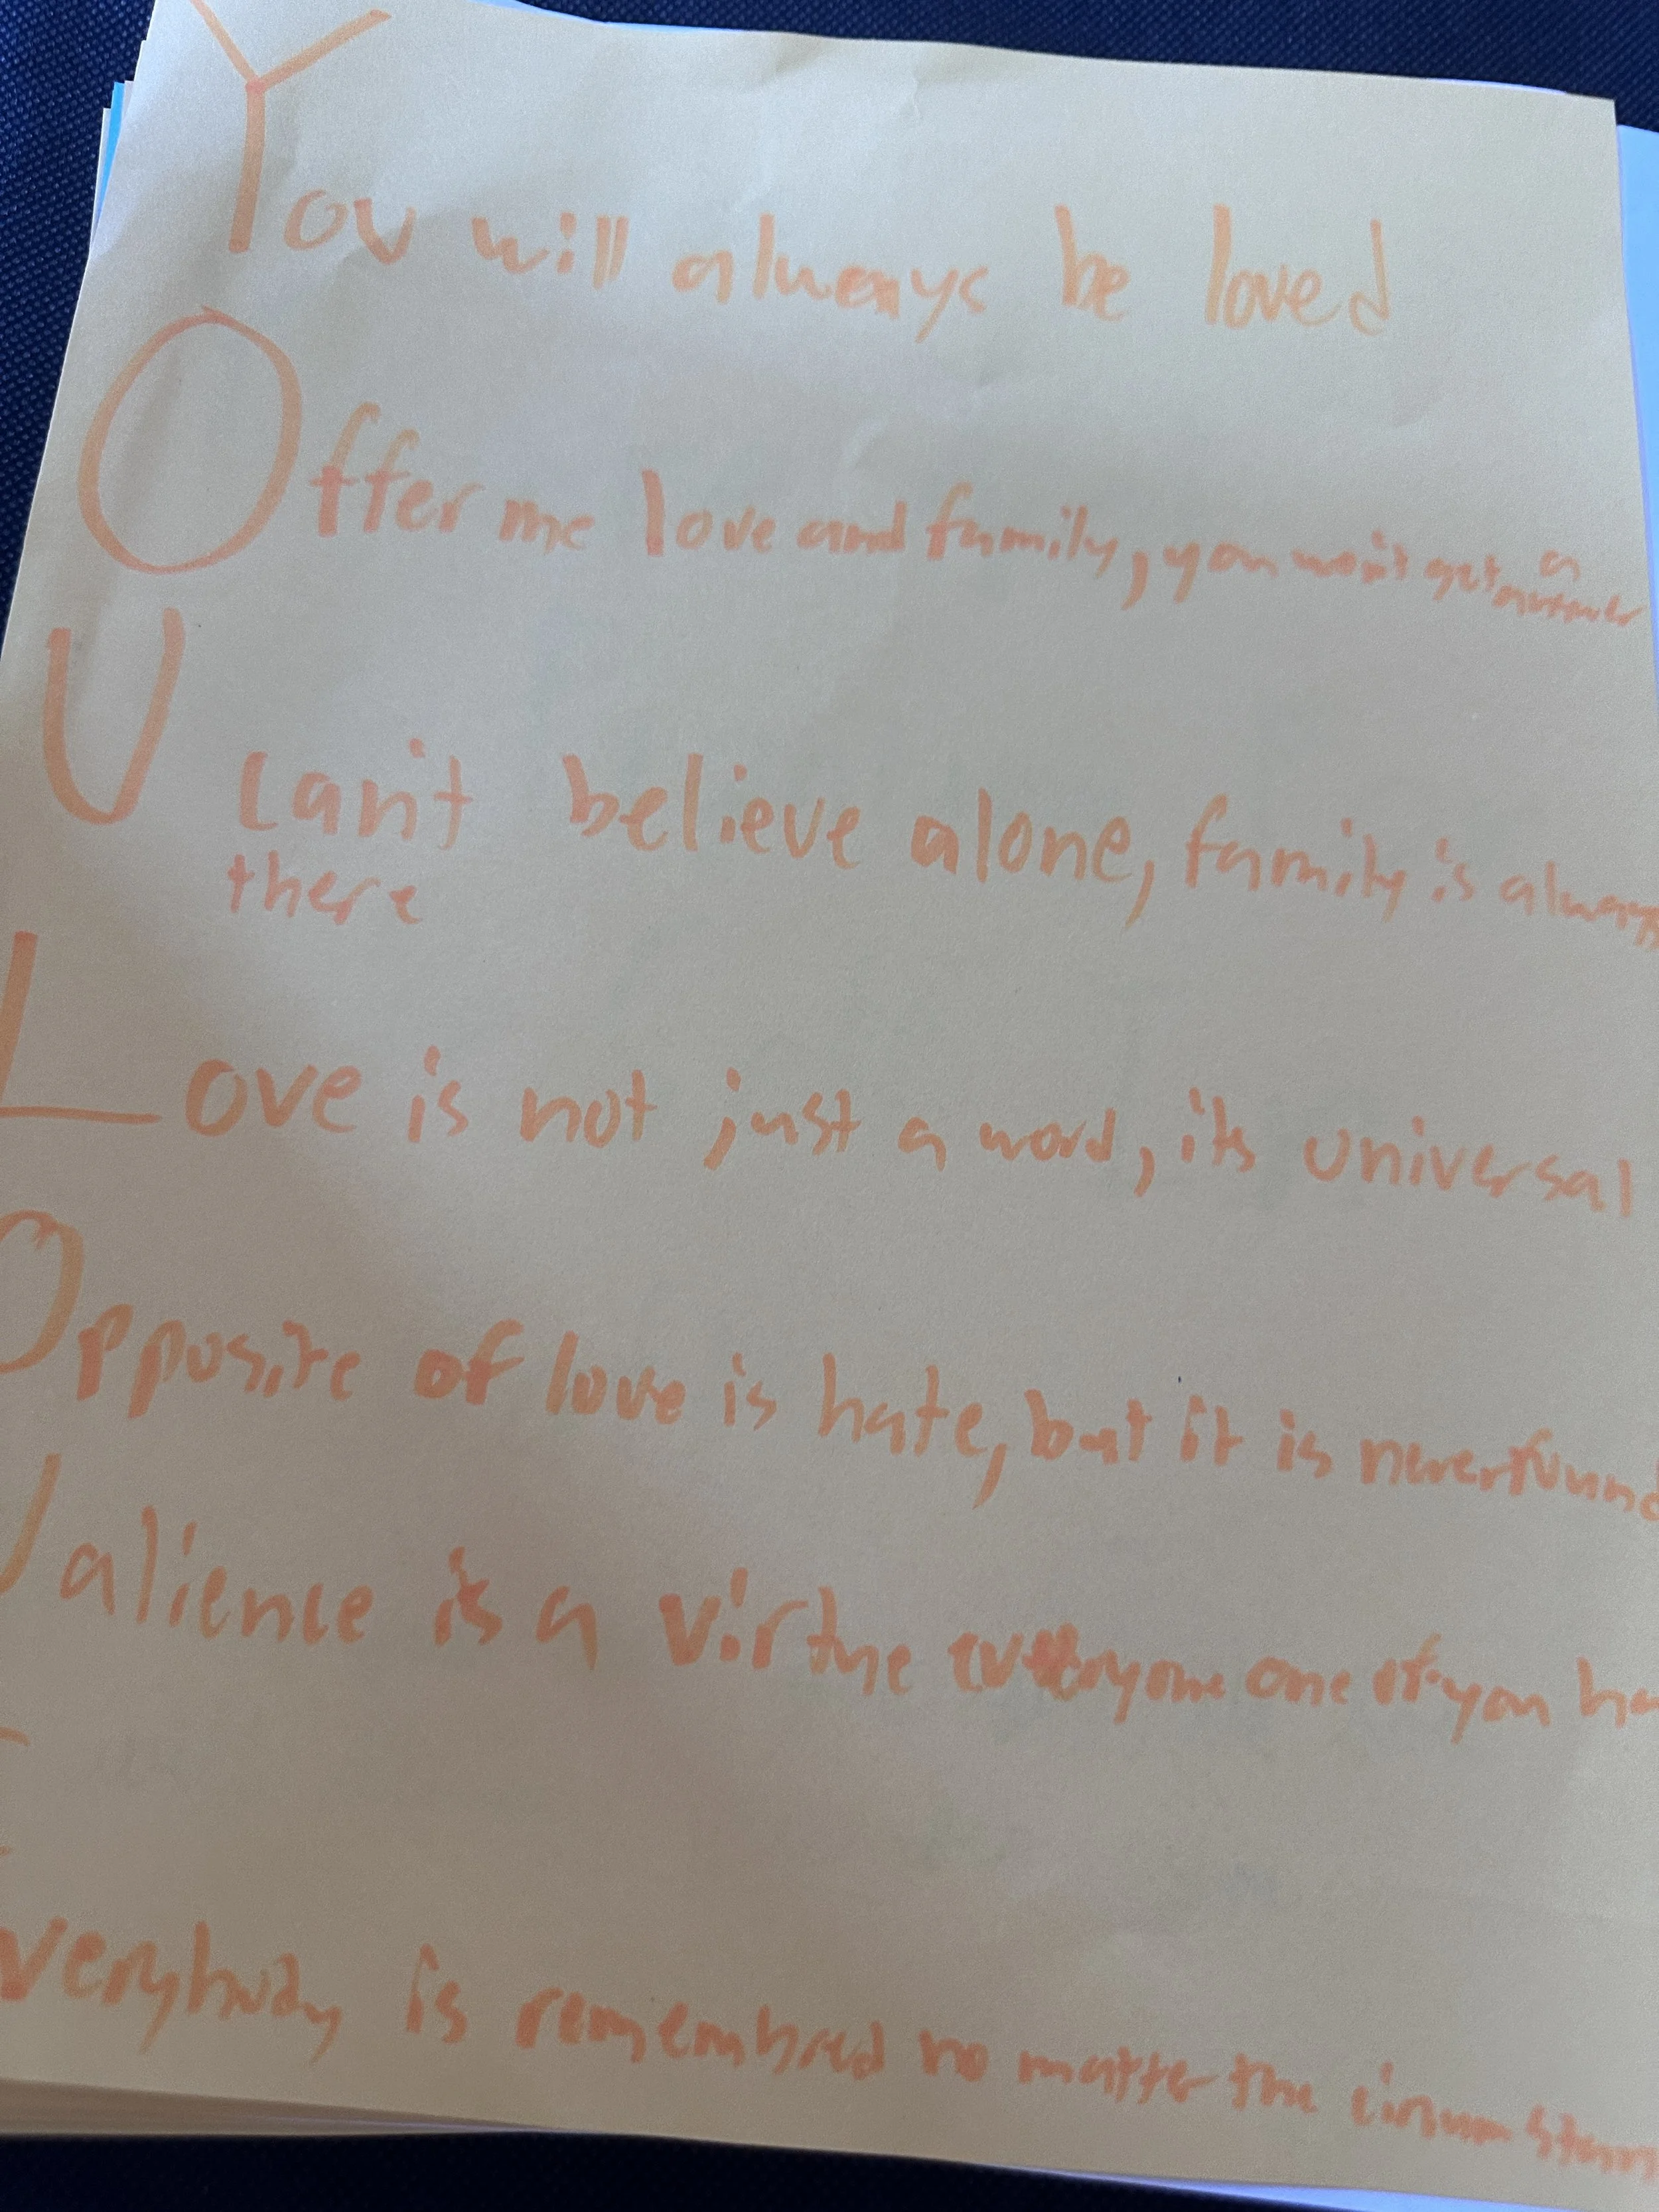 You will always be loved
Offer me love and family, you won't get a
U can't believe alone, family is always
there
Love is not just a word, its universal
Opposite of love is hate, but it is never found
Valience is a virtue everyone one of you ha
Everybody is remembred no matter the circumstan